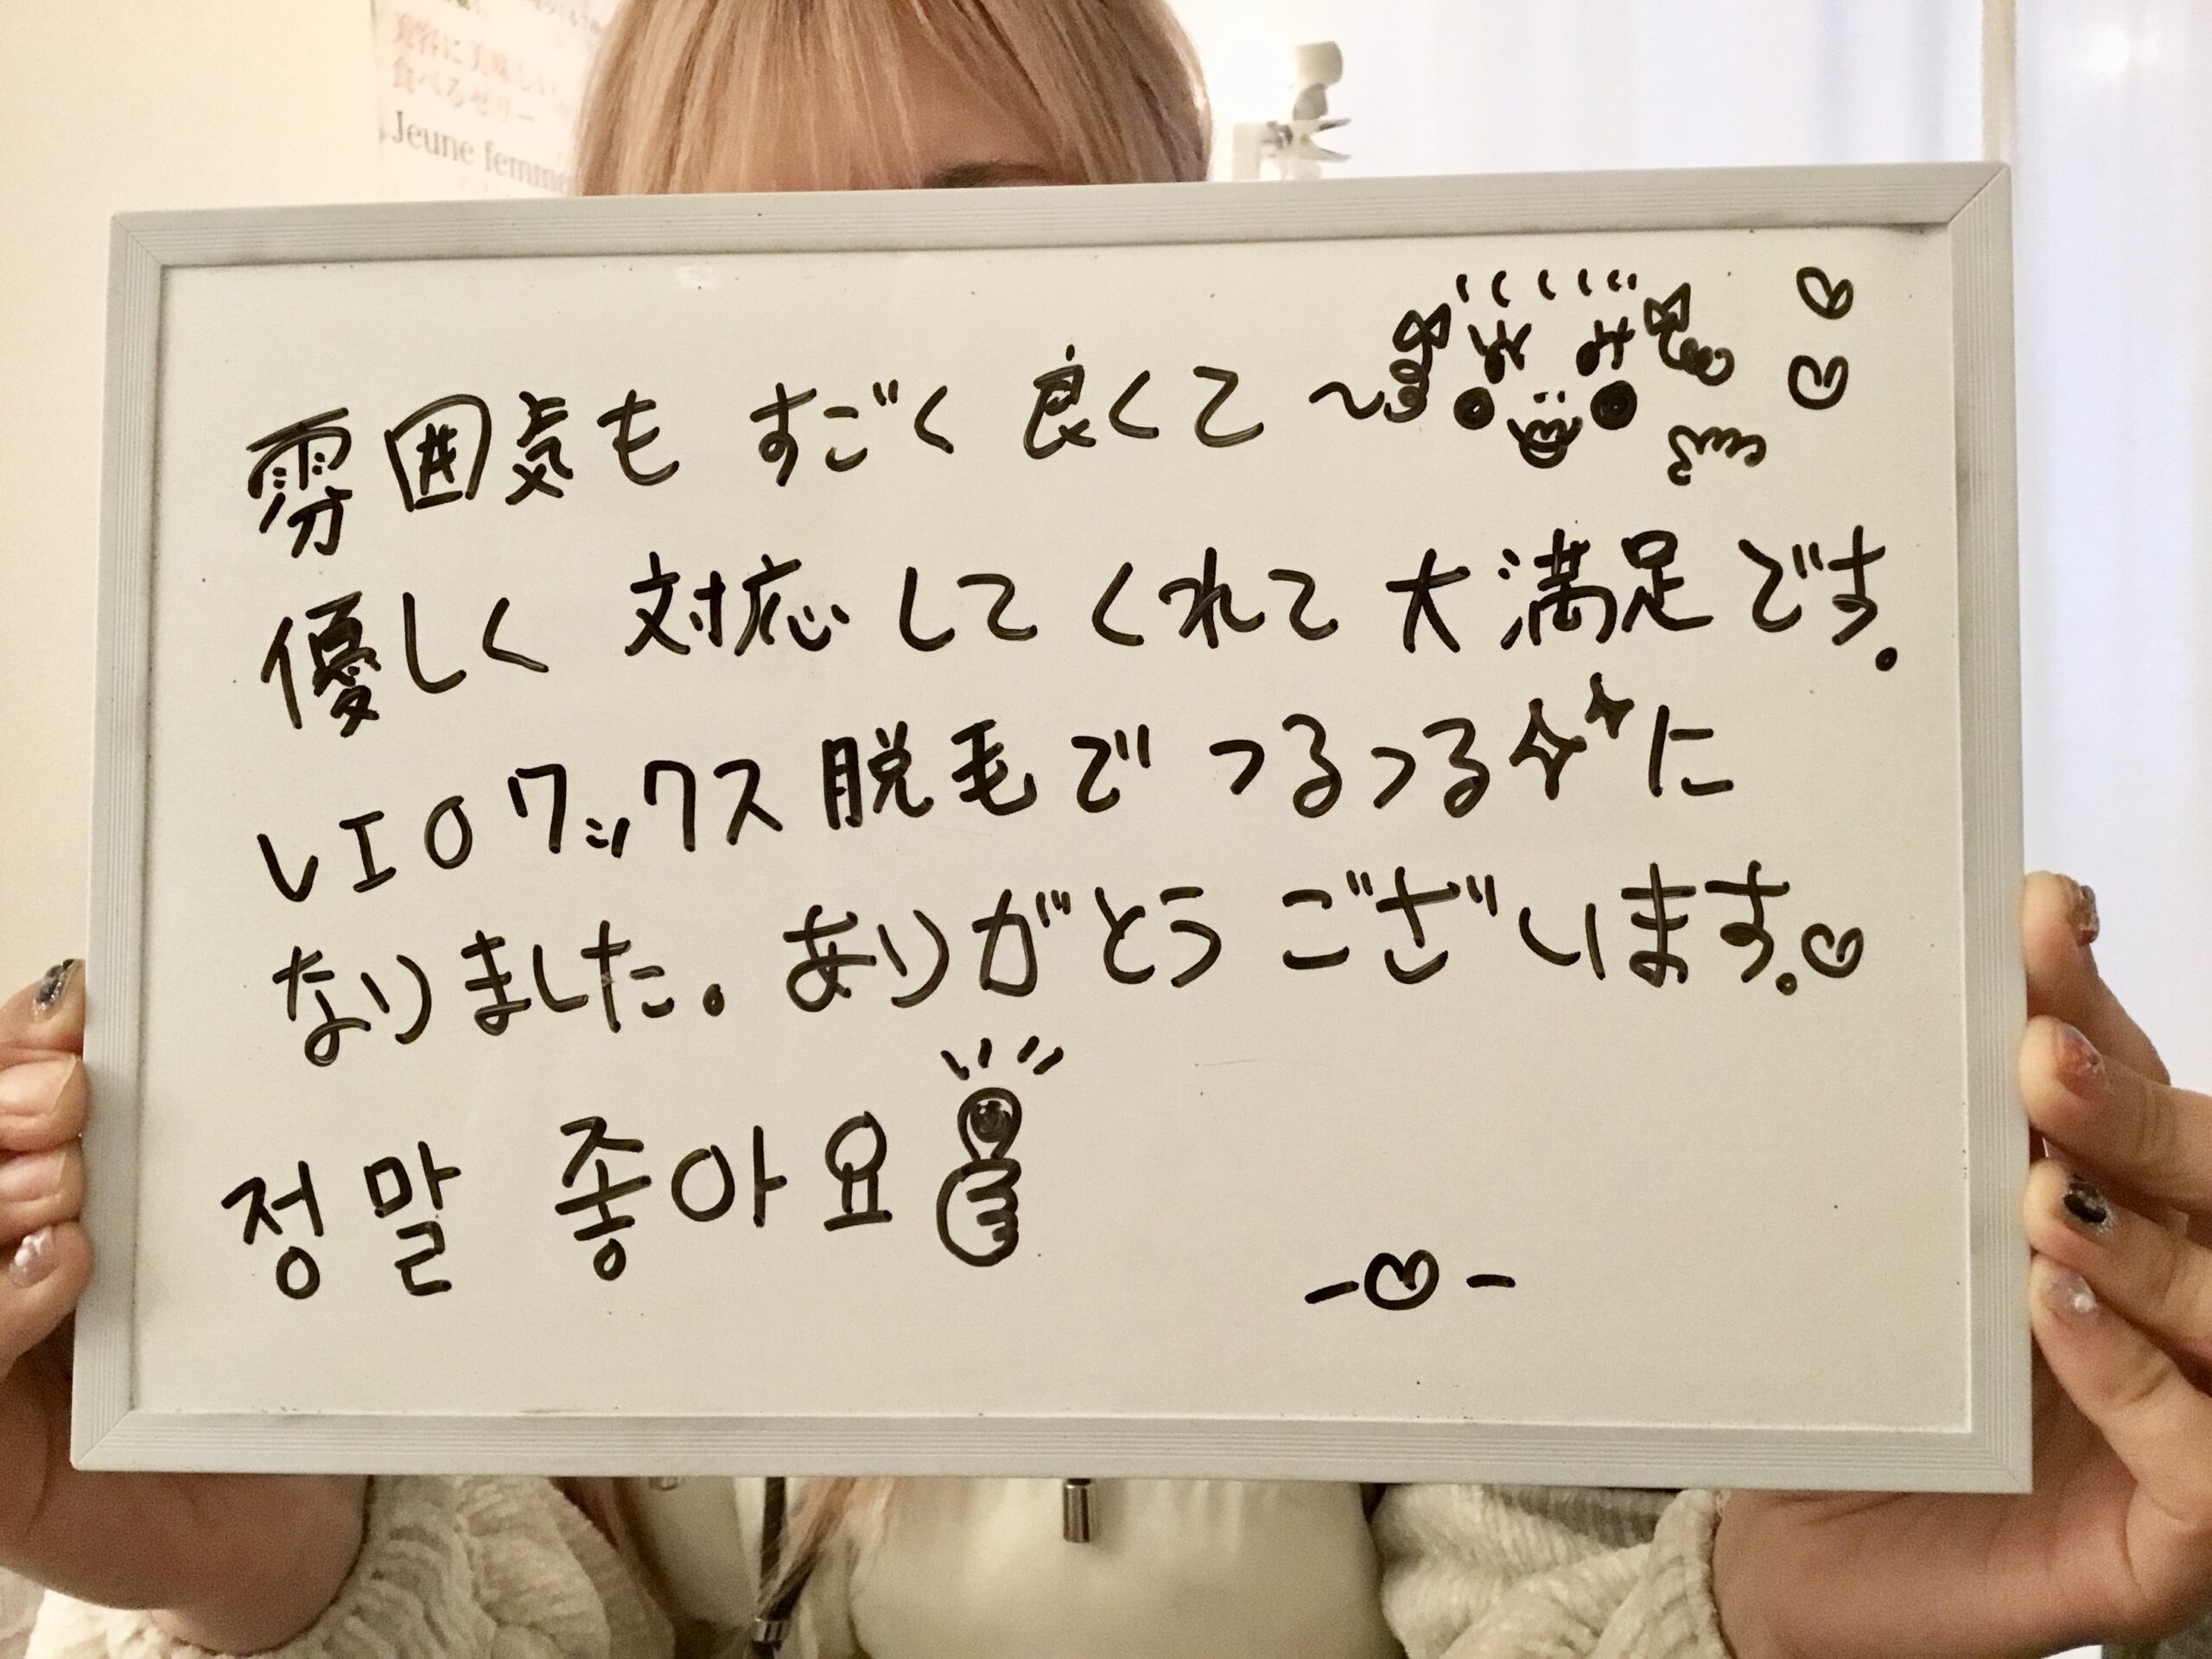 美容に美味しい
食べるゼリー
Jeune femme
雰囲気も すごく 良くて〜
優しく 対応して くれて 大満足です。
VIOワックス脱毛で つるつるに
なりました。ありがとう ございます。♡
정말 좋아요